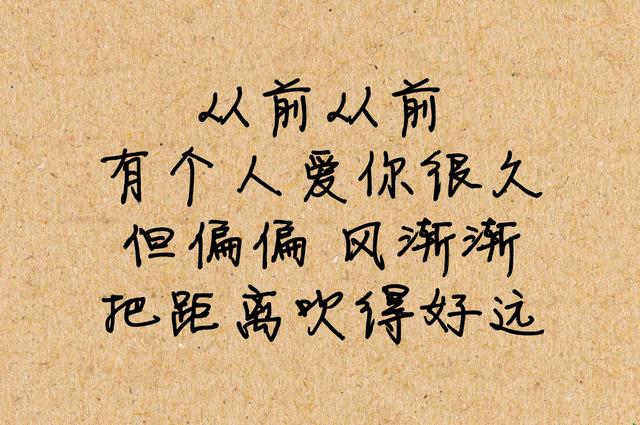 从前从前
有个人爱你很久
但偏偏 风渐渐
把距离吹得好远